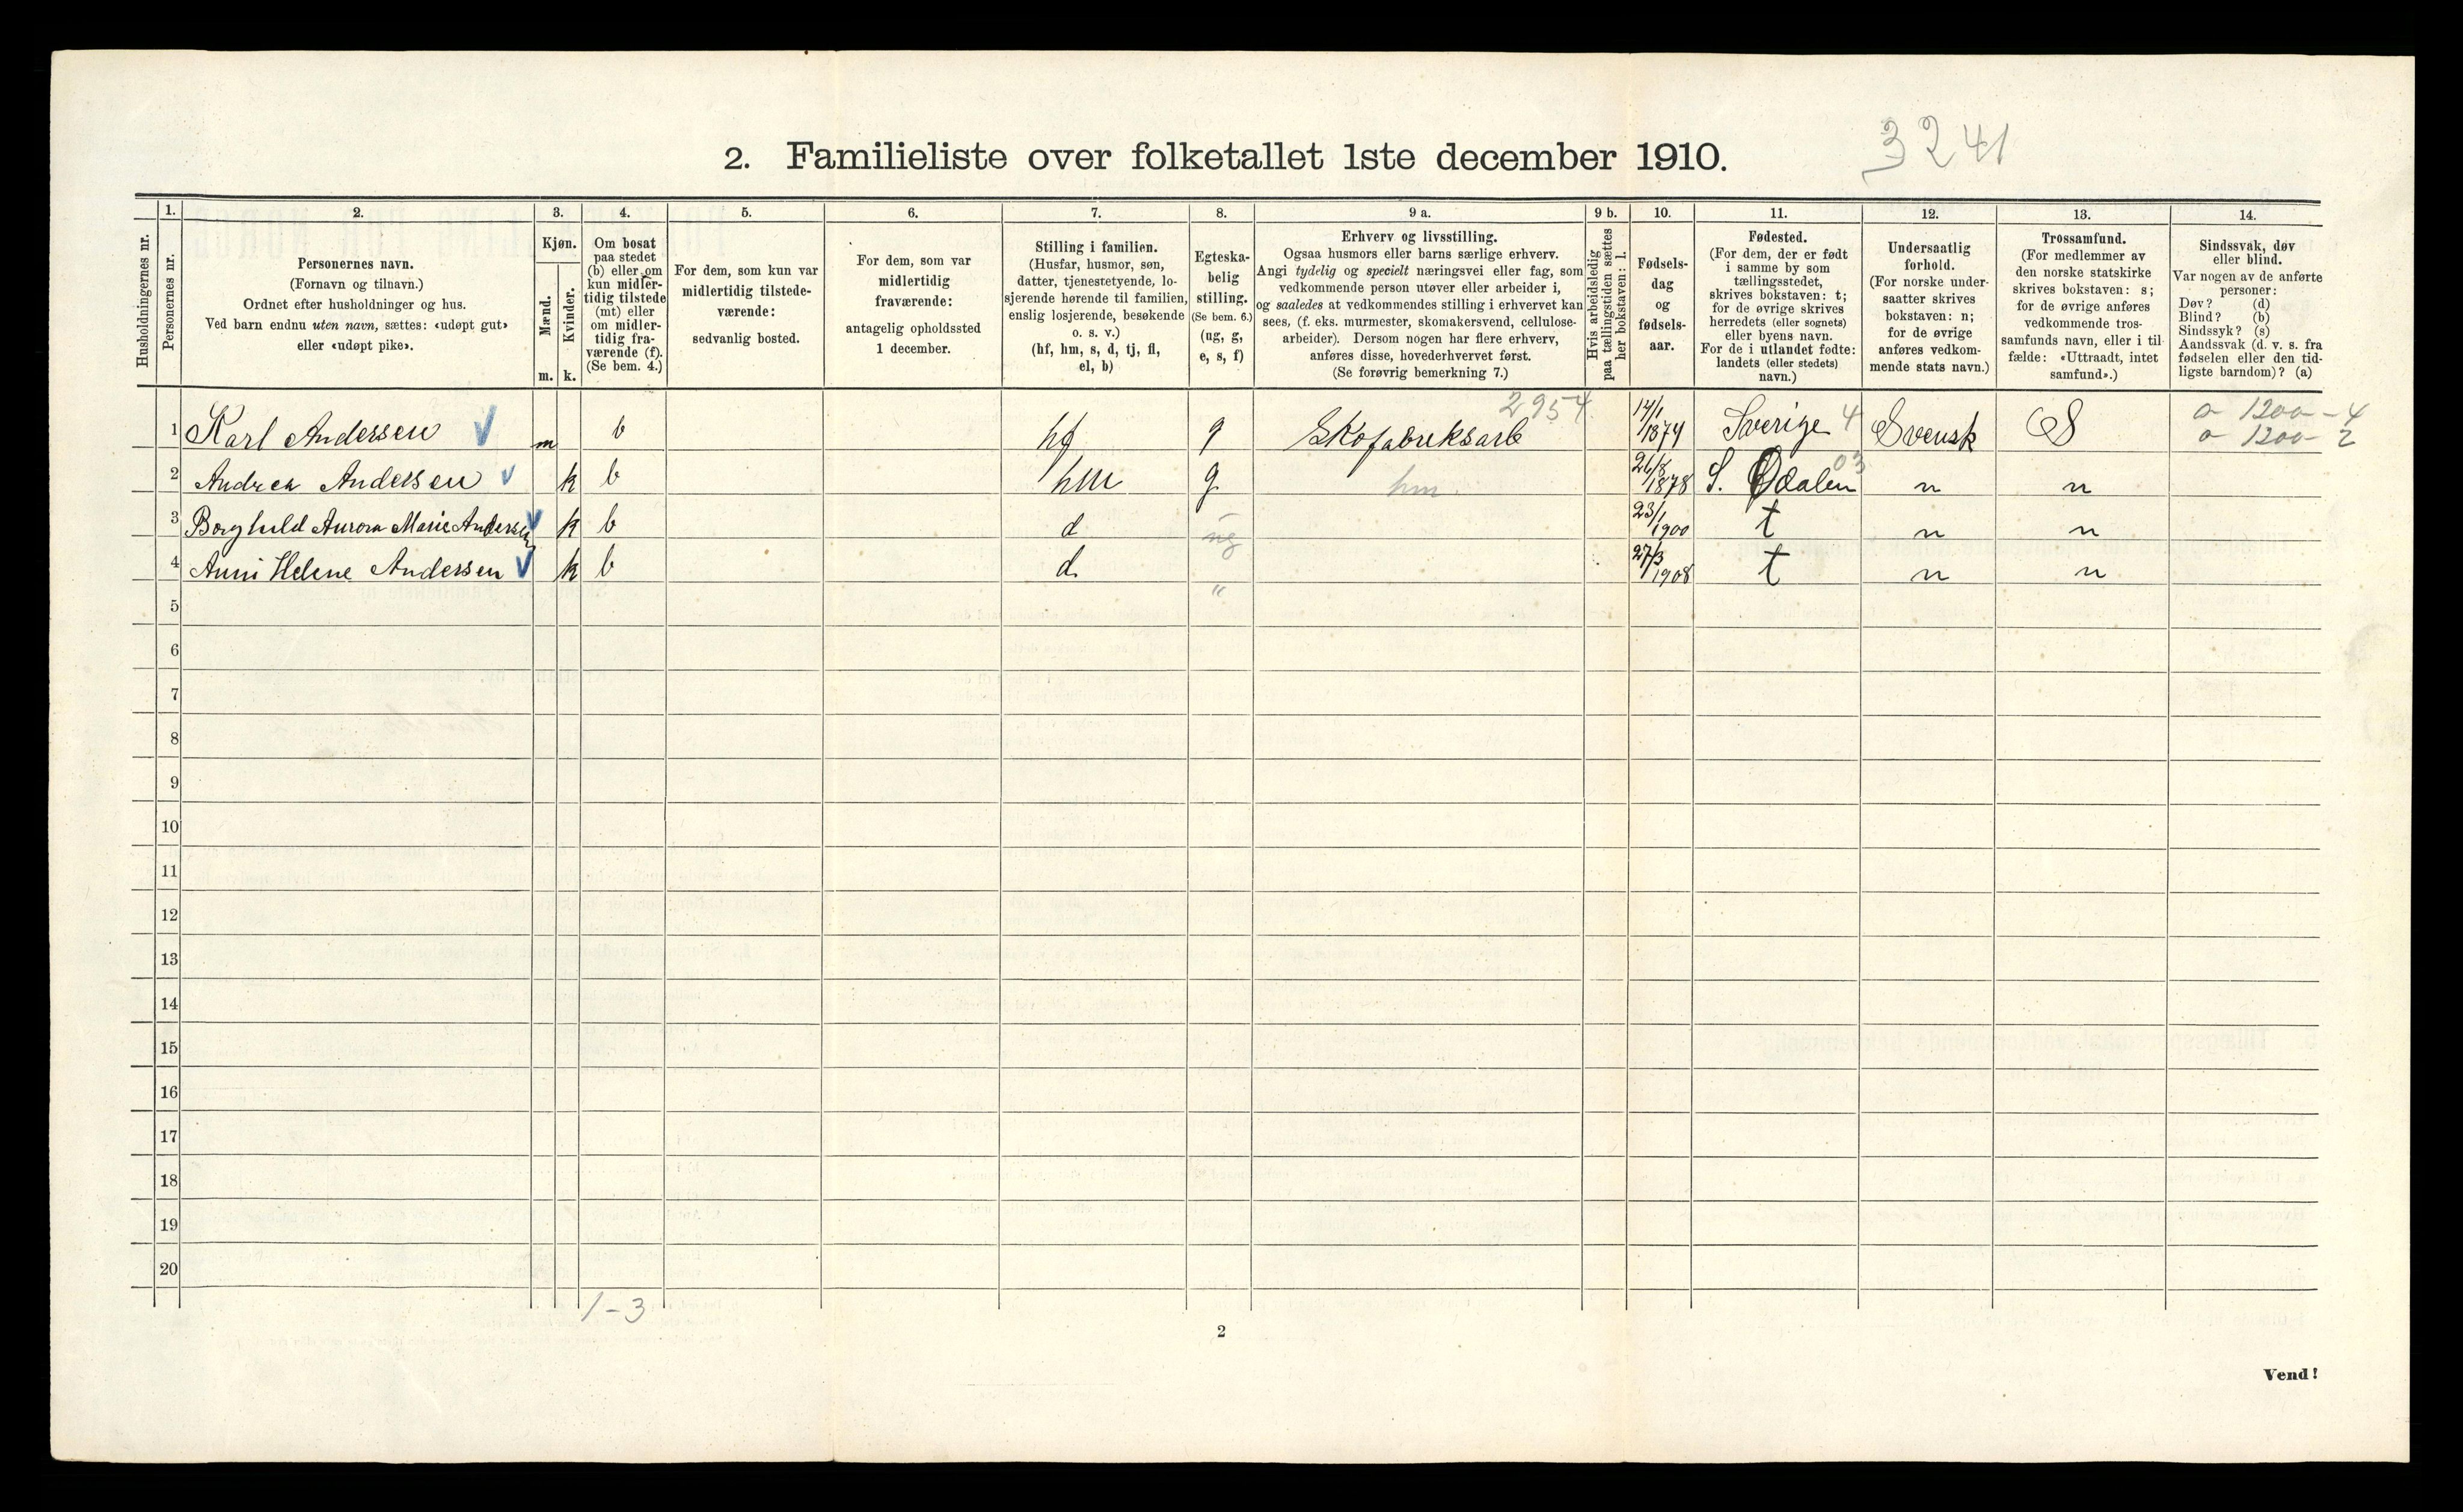 3241
2. Familieliste over folketallet 1ste december 1910.
Husholdningernes nr.
1.
Personernes nr.
2.
Personernes navn.
(Fornavn og tilnavn.)
Ordnet efter husholdninger og hus.
Ved barn endnu uten navn, sættes: «udøpt gut»
eller «udøpt pike».
3.
Kjøn.
Mænd.
Kvinder.
m. k.
4.
Om bosat
paa stedet
(b) eller om
kun midler-
tidig tilstede
(mt) eller
om midler-
tidig fra-
værende (f).
(Se bem. 4.)
5.
For dem, som kun var
midlertidig tilstede-
værende:
sedvanlig bosted.
6.
For dem, som var
midlertidig
fraværende:
antagelig opholdssted
1 december.
7.
Stilling i familien.
(Husfar, husmor, søn,
datter, tjenestetyende, lo-
sjerende hørende til familien,
enslig losjerende, besøkende
o. s. v.)
(hf, hm, s, d, tj, fl,
el, b)
8.
Egteska-
belig
stilling.
(Se bem. 6.)
(ug, g,
e, s, f)
9 a.
Erhverv og livsstilling.
Ogsaa husmors eller barns særlige erhverv.
Angi tydelig og specielt næringsvei eller fag, som
vedkommende person utøver eller arbeider i,
og saaledes at vedkommendes stilling i erhvervet kan
sees, (f. eks. murmester, skomakersvend, cellulose-
arbeider). Dersom nogen har flere erhverv,
anføres disse, hovederhvervet først.
(Se forøvrig bemerkning 7.)
9 b.
Hvis arbeidsledig
paa tællingstiden sættes
her bokstaven: l.
10.
Fødsels-
dag
og
fødsels-
aar.
11.
Fødested.
(For dem, der er født
i samme by som
tællingsstedet,
skrives bokstaven: t;
for de øvrige skrives
herredets (eller sognets)
eller byens navn.
For de i utlandet fødte:
landets (eller stedets)
navn.)
12.
Undersaatlig
forhold.
(For norske under-
saatter skrives
bokstaven: n;
for de øvrige
anføres vedkom-
mende stats navn.)
13.
Trossamfund.
(For medlemmer av
den norske statskirke
skrives bokstaven: s;
for de øvrige anføres
vedkommende tros-
samfunds navn, eller i til-
fælde: «Uttraadt, intet
samfund».)
14.
Sindssvak, døv
eller blind.
Var nogen av de anførte
personer:
Døv? (d)
Blind? (b)
Sindssyk? (s)
Aandssvak (d. v. s. fra
fødselen eller den tid-
ligste barndom)? (a)
1 Karl Andersen m b hf g Skofabriksarb 2954 14/1 1874 Sverige 4 Svensk S 1200-4
1200-2
2 Andrea Andersen k b hm g hm. 26/8 1878 S. Odalen 03 n n
3 Borghild Aurora Marie Andersen k b d ug 23/1 1900 t n n
4 Anni Helene Andersen k b d " 27/3 1908 t n n
5
6
7
8
9
10
11
12
13
14
15
16
17
18
19
20
1-3
2
Vend!